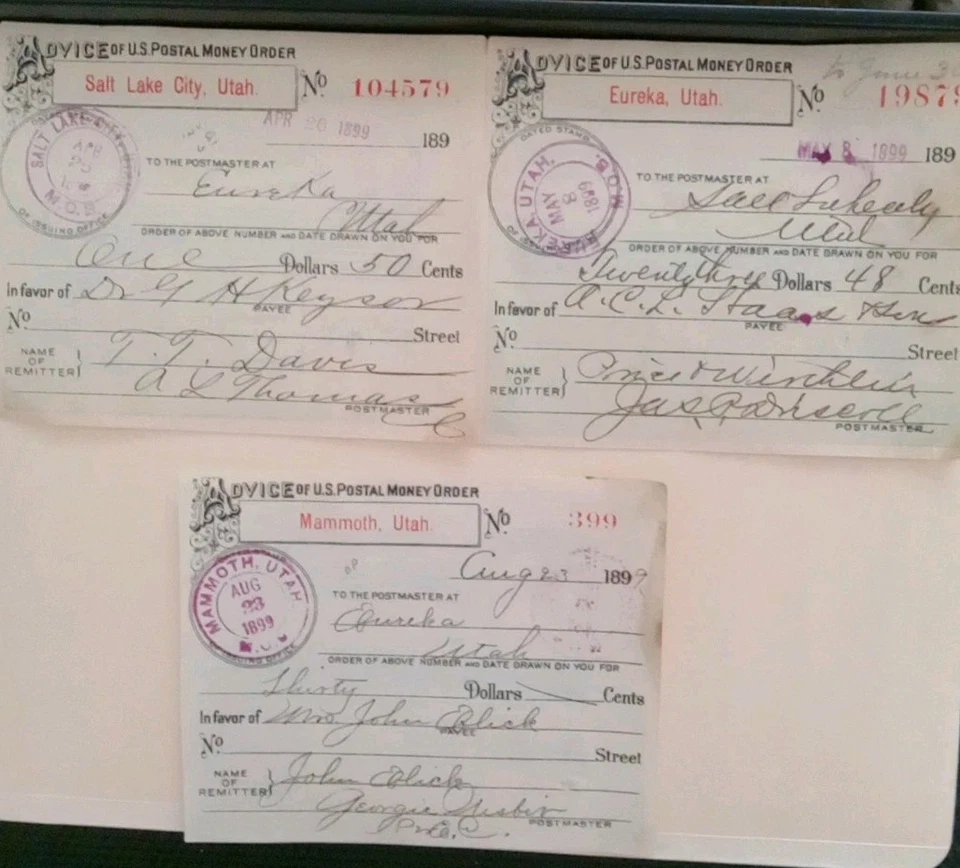 ADVICE OF U.S. POSTAL MONEY ORDER
Salt Lake City, Utah.
No 104579
APR 26 1899
189
SALT LAKE CITY
APR
M.O.B.
OF ISSUING OFFICE
TO THE POSTMASTER AT
Eureka
Utah
ORDER OF ABOVE NUMBER AND DATE DRAWN ON YOU FOR
One Dollars 50 Cents
In favor of Dr G H Keysor
PAYEE
No Street
NAME OF REMITTER
T. T. Davis
A L Thomas
POSTMASTER
ADVICE OF U.S. POSTAL MONEY ORDER
to June 3
Eureka, Utah.
No 19879
MAY 8 1899 189
DATED STAMP
EUREKA, UTAH.
MAY
8
1899
M.O.B.
TO THE POSTMASTER AT
Salt Lake City
Utah
ORDER OF ABOVE NUMBER AND DATE DRAWN ON YOU FOR
Twenty three Dollars 48 Cents
In favor of A. C. L. Staas
PAYEE
No Street
NAME OF REMITTER
Jas P Driscoll
POSTMASTER
ADVICE OF U.S. POSTAL MONEY ORDER
Mammoth, Utah.
No 399
Aug 23 1899
MAMMOTH, UTAH.
AUG
23
1899
OF ISSUING OFFICE
TO THE POSTMASTER AT
Eureka
Utah
ORDER OF ABOVE NUMBER AND DATE DRAWN ON YOU FOR
Thirty Dollars Cents
In favor of Mrs. John Blick
PAYEE
No Street
NAME OF REMITTER
John Blick
Georgie
POSTMASTER